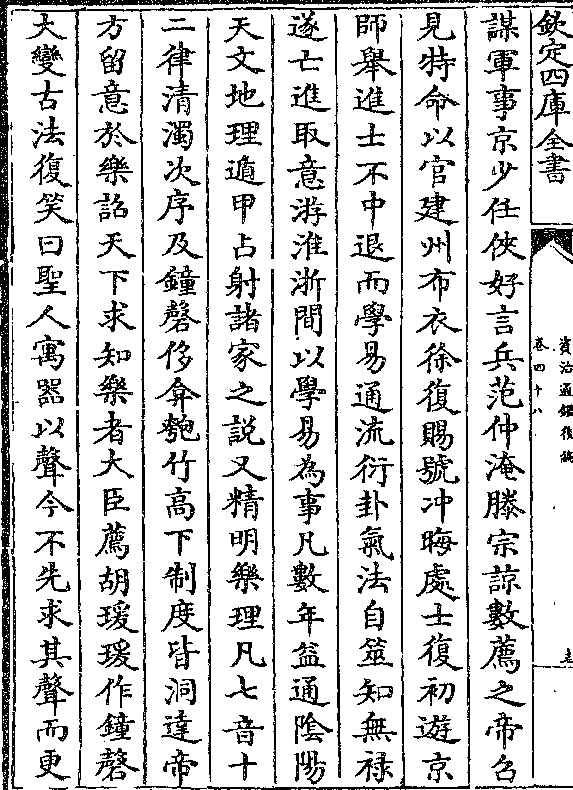 欽定四庫全書
資治通鑑後編
卷四十八
謀軍事京少任俠好言兵范仲淹滕宗諒數薦之帝召
見特命以官建州布衣徐復賜號冲晦處士復初遊京
師舉進士不中退而學易通流衍卦氣法自筮知無禄
遂亡進取意游淮浙間以學易為事凡數年益通陰陽
天文地理遁甲占射諸家之說又精明樂理凡七音十
二律清濁次序及鐘磬侈弇匏竹高下制度皆洞達帝
方留意於樂詔天下求知樂者大臣薦胡瑗瑗作鐘磬
大變古法復笑曰聖人寓器以聲今不先求其聲而更